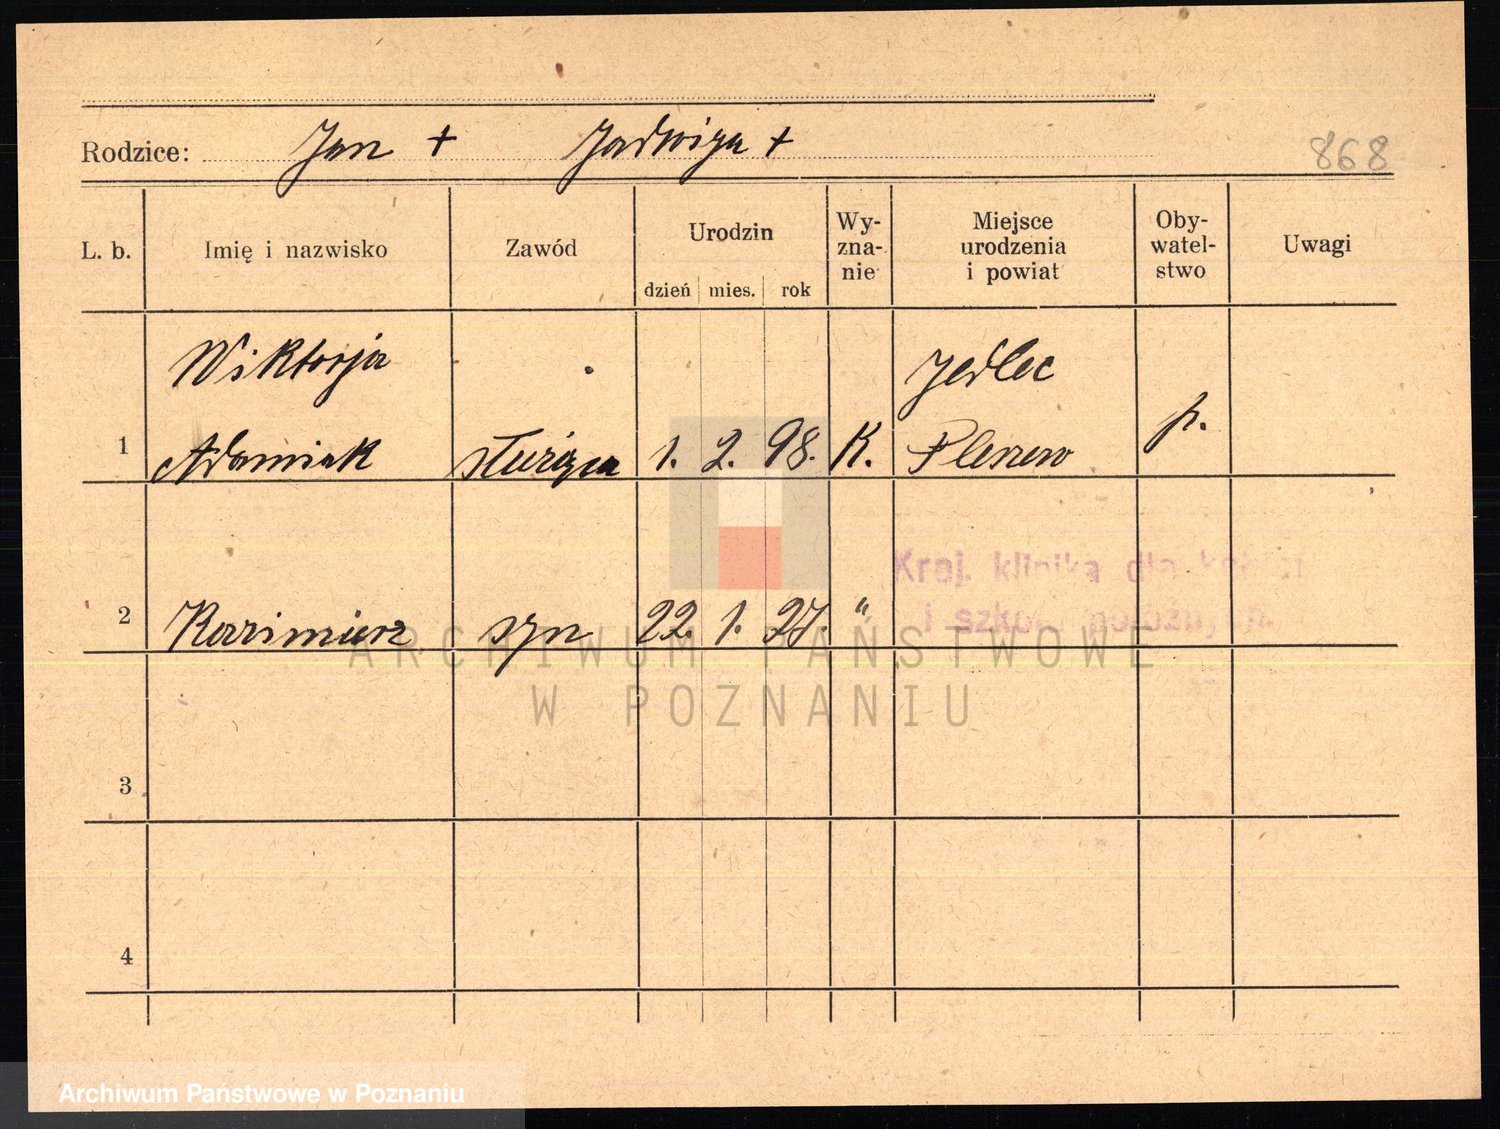 Rodzice: Jan + Jadwiga +
868
L. b. Imię i nazwisko Zawód Urodzin dzień mies. rok Wy-zna-nie Miejsce urodzenia i powiat Oby-watel-stwo Uwagi
Wiktorja Jedlec
1 Adamiak służąca 1. 2. 98. K. Pleszew p.
Kraj. klinika dla kobiet
i szkoła położnych
2 Kazimierz syn 22. 1. 27. "
ARCHIWUM PAŃSTWOWE
W POZNANIU
3
4
Archiwum Państwowe w Poznaniu